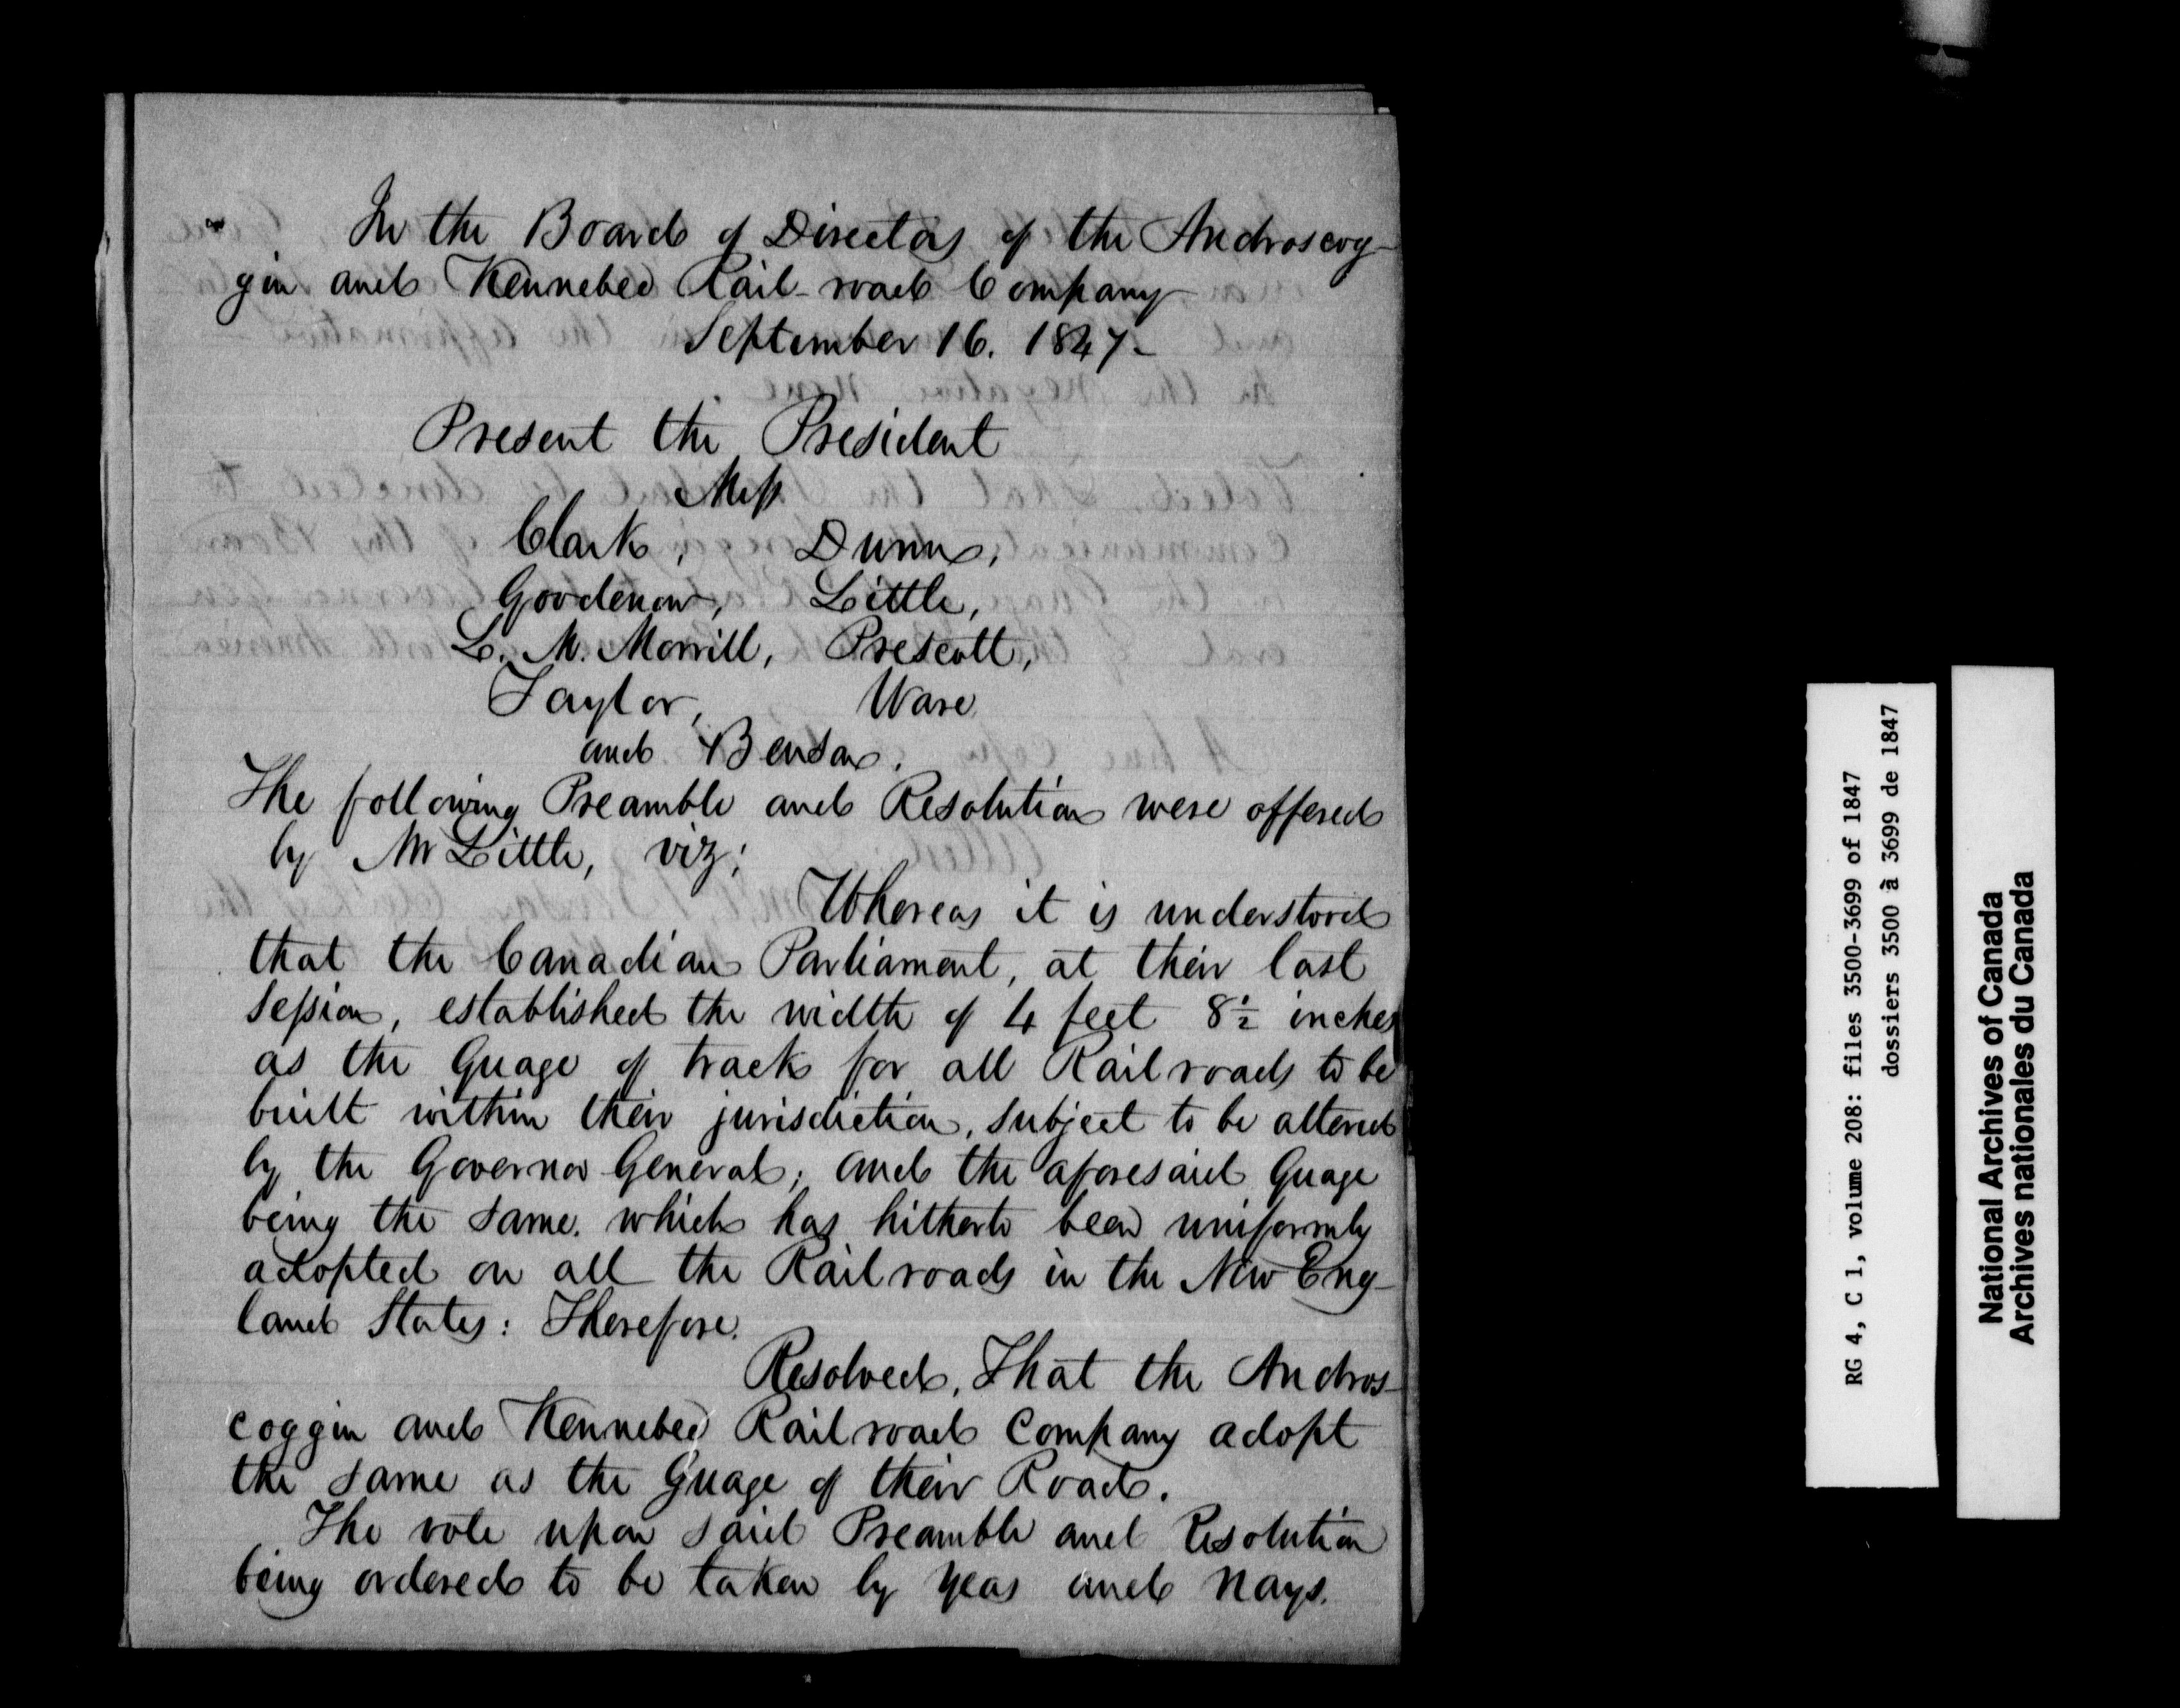 In the Board of Directors of the Androscog-
gin and Kennebec Rail-road Company
September 16. 1847-
Present the President
Mess
Clark, Dunn,
Goodenow, Little,
L. M. Morrill, Prescott,
Taylor, Ware
and Benson.
The following Preamble and Resolution were offered
by Mr Little, viz;
Whereas it is understood
that the Canadian Parliament, at their last
session, established the width of 4 feet 8½ inches
as the Guage of track for all Railroads to be
built within their jurisdiction, subject to be altered
by the Governor General; and the aforesaid Guage
being the same which has hitherto been uniformly
adopted on all the Railroads in the New Eng-
land States: Therefore.
Resolved, That the Andros-
coggin and Kennebec Railroad Company adopt
the same as the Guage of their Road.
The vote upon said Preamble and Resolution
being ordered to be taken by yeas and nays.
RG 4, C 1, volume 208: files 3500-3699 of 1847
dossiers 3500 à 3699 de 1847
National Archives of Canada
Archives nationales du Canada